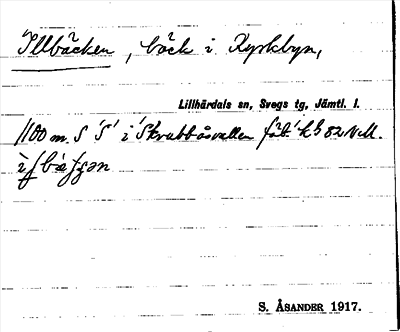 Illbäcken, bäck i Kyrkbyn,
Lillhärdals sn, Svegs tg, Jämtl. l.
1100 m. S 'S' i 'Skrubbåsvallen fäb.'
S. ÅSANDER 1917.